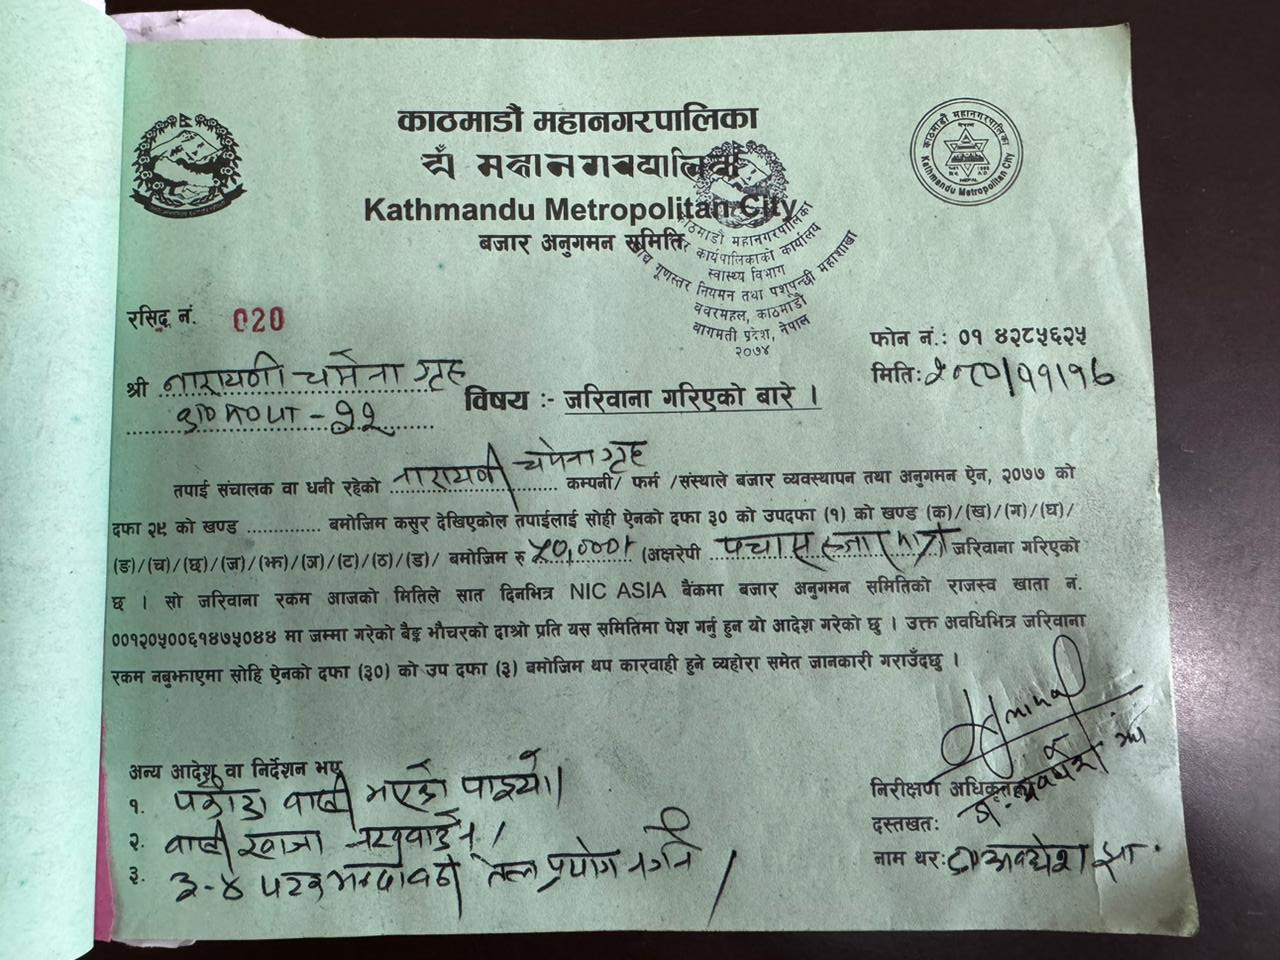 काठमाडौं महानगरपालिका
Kathmandu Metropolitan City
बजार अनुगमन समिति
काठमाडौं महानगरपालिका
Kathmandu Metropolitan City
काठमाडौं महानगरपालिका
नगर कार्यपालिकाको कार्यालय
स्वास्थ्य विभाग
खाद्य गूणस्तर नियमन तथा पशुपन्छी महाशाखा
बबरमहल, काठमाडौं
बागमती प्रदेश, नेपाल
२०७४
रसिद नं. 020
फोन नं.: ०१ ४२८५६२५
श्री नारायणी चमेना गृह
मिति: २०८०/११/१६
विषय :- जरिवाना गरिएको बारे ।
तपाई संचालक वा धनी रहेको नारायणी चमेना गृह कम्पनी/ फर्म /संस्थाले बजार व्यवस्थापन तथा अनुगमन ऐन, २०७७ को
दफा २९ को खण्ड ............ बमोजिम कसुर देखिएकोल तपाईलाई सोही ऐनको दफा ३० को उपदफा (१) को खण्ड (क)/(ख)/(ग)/(घ)/
(ङ)/(च)/(छ)/(ज)/(झ)/(ञ)/(ट)/(ठ)/(ड)/ बमोजिम रु ५०,०००/- (अक्षरेपी पचास हजार मात्र जरिवाना गरिएको
छ । सो जरिवाना रकम आजको मितिले सात दिनभित्र NIC ASIA बैंकमा बजार अनुगमन समितिको राजस्व खाता नं.
००१२०५००६१४७५०४४ मा जम्मा गरेको बैङ्क भौचरको दाश्रो प्रति यस समितिमा पेश गर्नु हुन यो आदेश गरेको छु । उक्त अवधिभित्र जरिवाना
रकम नबुझाएमा सोहि ऐनको दफा (३०) को उप दफा (३) बमोजिम थप कारवाही हुने व्यहोरा समेत जानकारी गराउँदछु ।
अन्य आदेश वा निर्देशन भए
१. पकौडा बासी भएको पाइयो।
२. बासी खाजा नखुवाउने।
३. ३-४ पटक भन्दा बढी तेल प्रयोग नगर्ने
निरीक्षण अधिकृतको
दस्तखत:
नाम थर: डा अवधेश झा